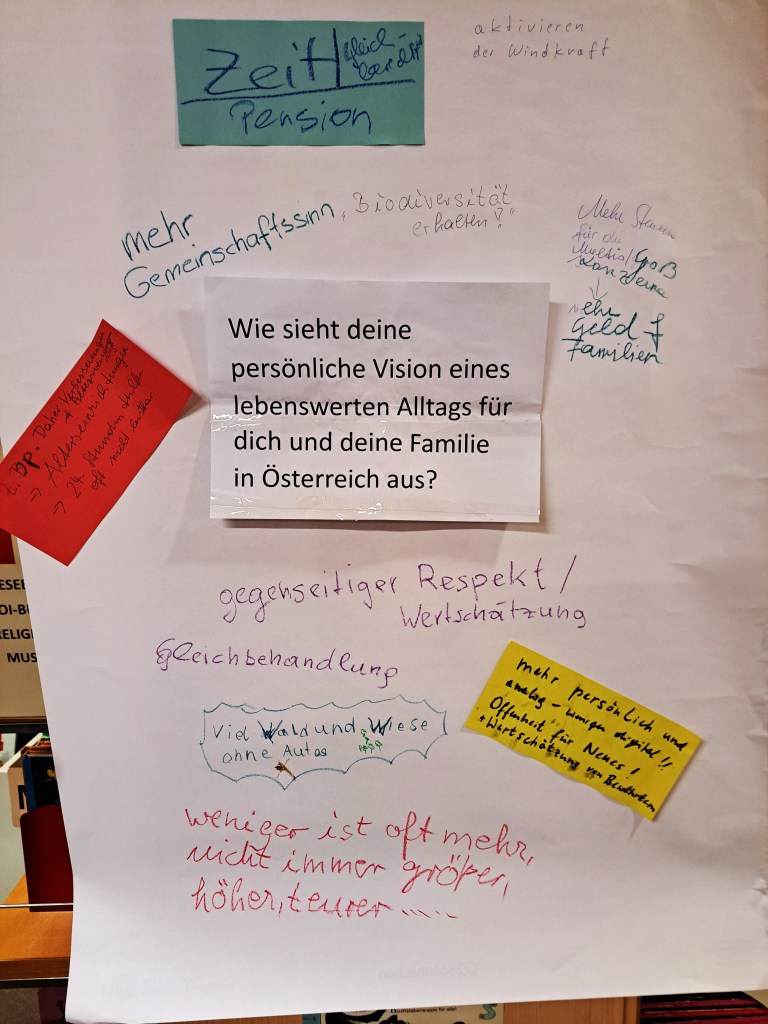 aktivieren
der Windkraft
Zeit/
Pension
mehr
Gemeinschaftssinn
"Biodiversität
erhalten!?"
Mehr Steuern
für die
Multis/Groß
Konzerne
mehr
Geld f
Familien
Wie sieht deine
persönliche Vision eines
lebenswerten Alltags für
dich und deine Familie
in Österreich aus?
→ Alterseinrichtungen
→ 24 Stunden Hilfe
oft nicht leistbar
gegenseitiger Respekt/
Wertschätzung
Gleichbehandlung
Viel Wald und Wiese
ohne Autos
mehr persönlich und
analog - weniger digital!!
Offenheit für Neues!
+Wertschätzung von Bewährtem
weniger ist oft mehr,
nicht immer größer,
höher, teurer.....
RELIG
MUS